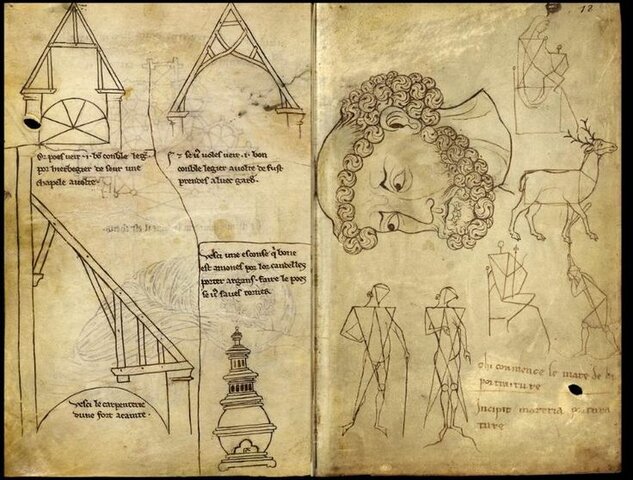 Or poes veir .i. bō conble legr
por herbegier de seur une
chapele avolte
⁊ se u̅ voles veir .i. bon
conble legier avolte de fust
prendes aluec gard.
vesci une esconse q̄ bone
est amones por lor candelles
porter argans. faire le poes
se u̅ saves torner
vesci le carpenterie
dune fort acainte.
12
chi commence le mate de
portraiture
Incipit materia
ture